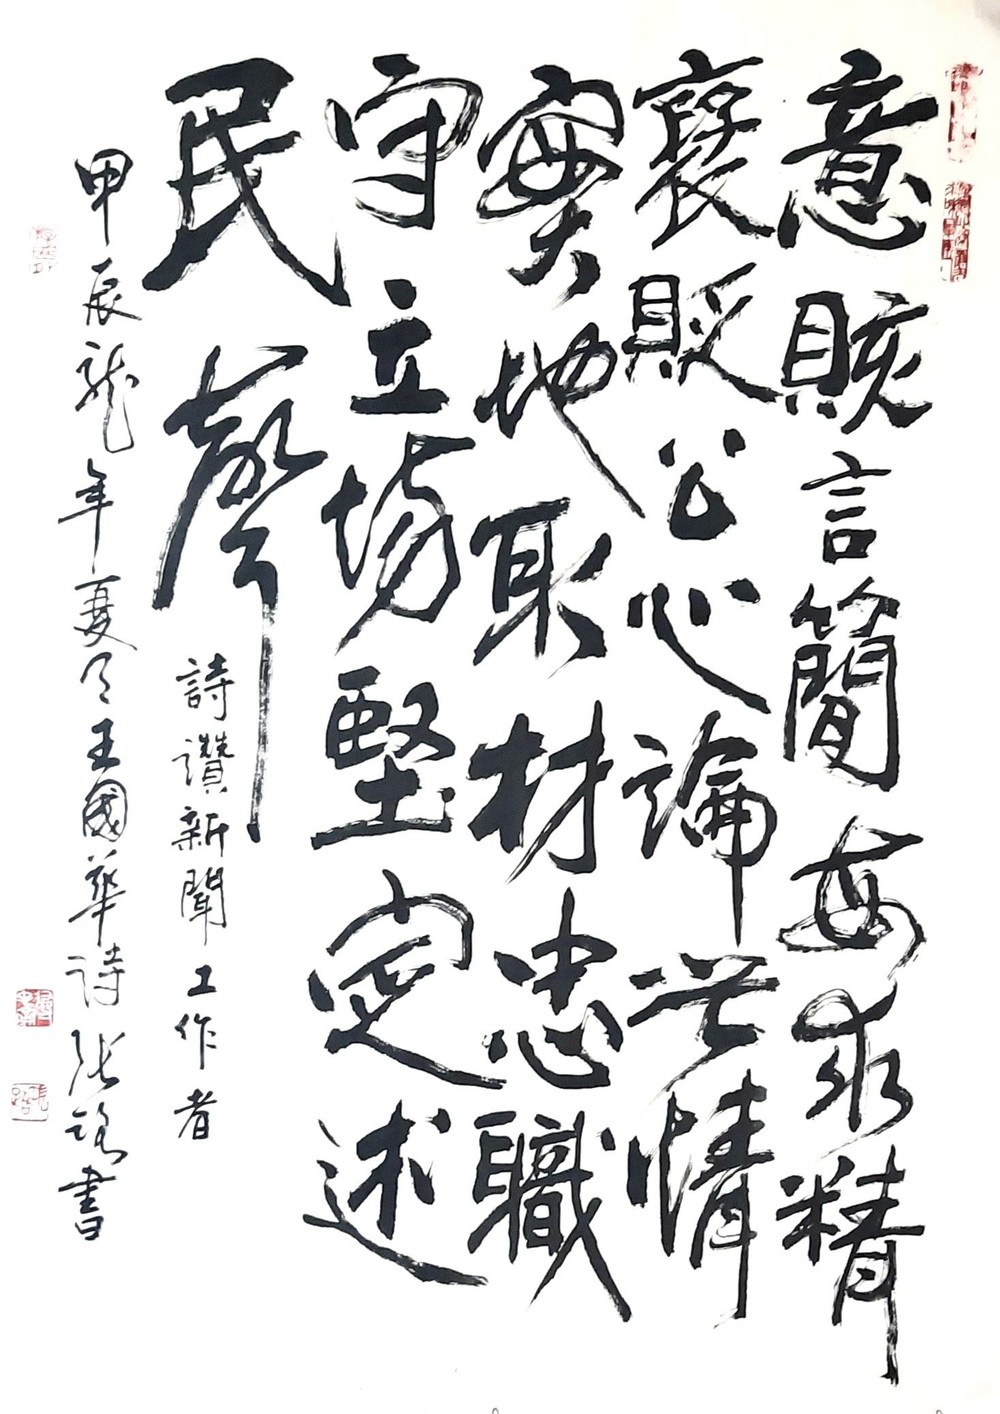 意賅言簡每求精
褒貶公心論世情
實地取材忠職
守立場堅定述
民聲
詩讚新聞工作者
甲辰龍年夏月王國華詩張書